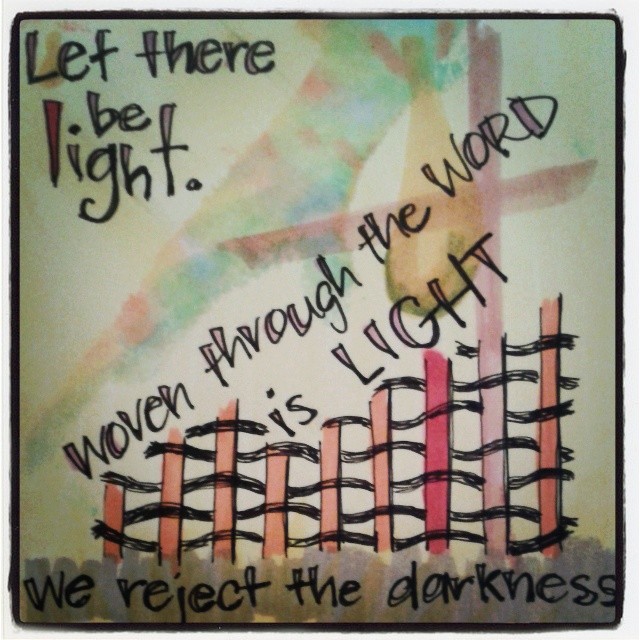 Let there
be
light.
woven through the WORD
is LIGHT
we reject the darkness